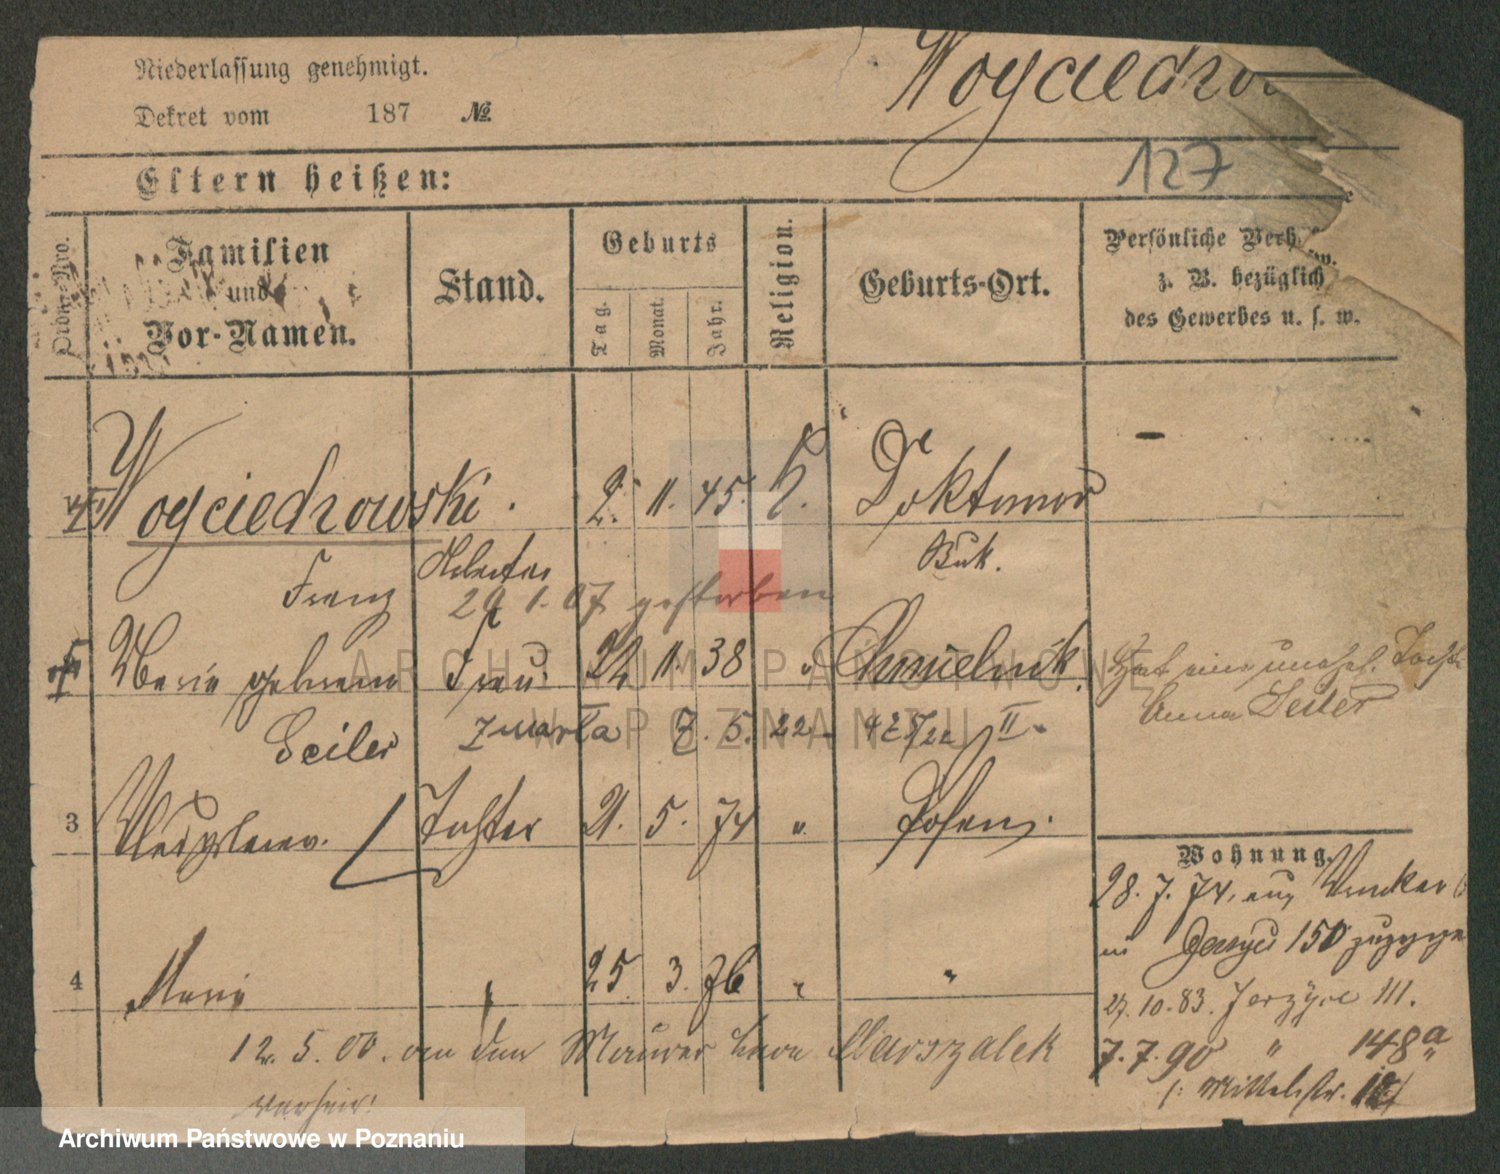 Niederlassung genehmigt.
Woyciechow
Dekret vom 187 №
127
Eltern heißen:
Ordn.-Nro.
Familien und Vor-Namen.
Stand.
Geburts
Tag. Monat. Jahr.
Religion.
Geburts-Ort.
Persönliche Verh
z. B. bezüglich
des Gewerbes u. s. w.
Woyciechowski. 2. 11. 45. K. Doktorowo
Buk.
Franz Arbeiter
29 1. 07 gestorben
Marie geborene Frau 11. 38 " Chmielnik
Hat eine unehel. Tocht
Anna Seiler
Seiler zmarła 7. 5. 22 II
3 Tochter 21. 5. 74 " Posen.
Wohnung.
28. 7. 74. aus
in 150
4 Marie " 25. 3. 76 " "
27. 10. 83. Jerzyce 111.
12. 5. 00. an den Maurer Marszalek
7. 7. 90 " 148a
verheir.
Mittelstr.
ARCHIWUM PAŃSTWOWE
W POZNANIU
Archiwum Państwowe w Poznaniu